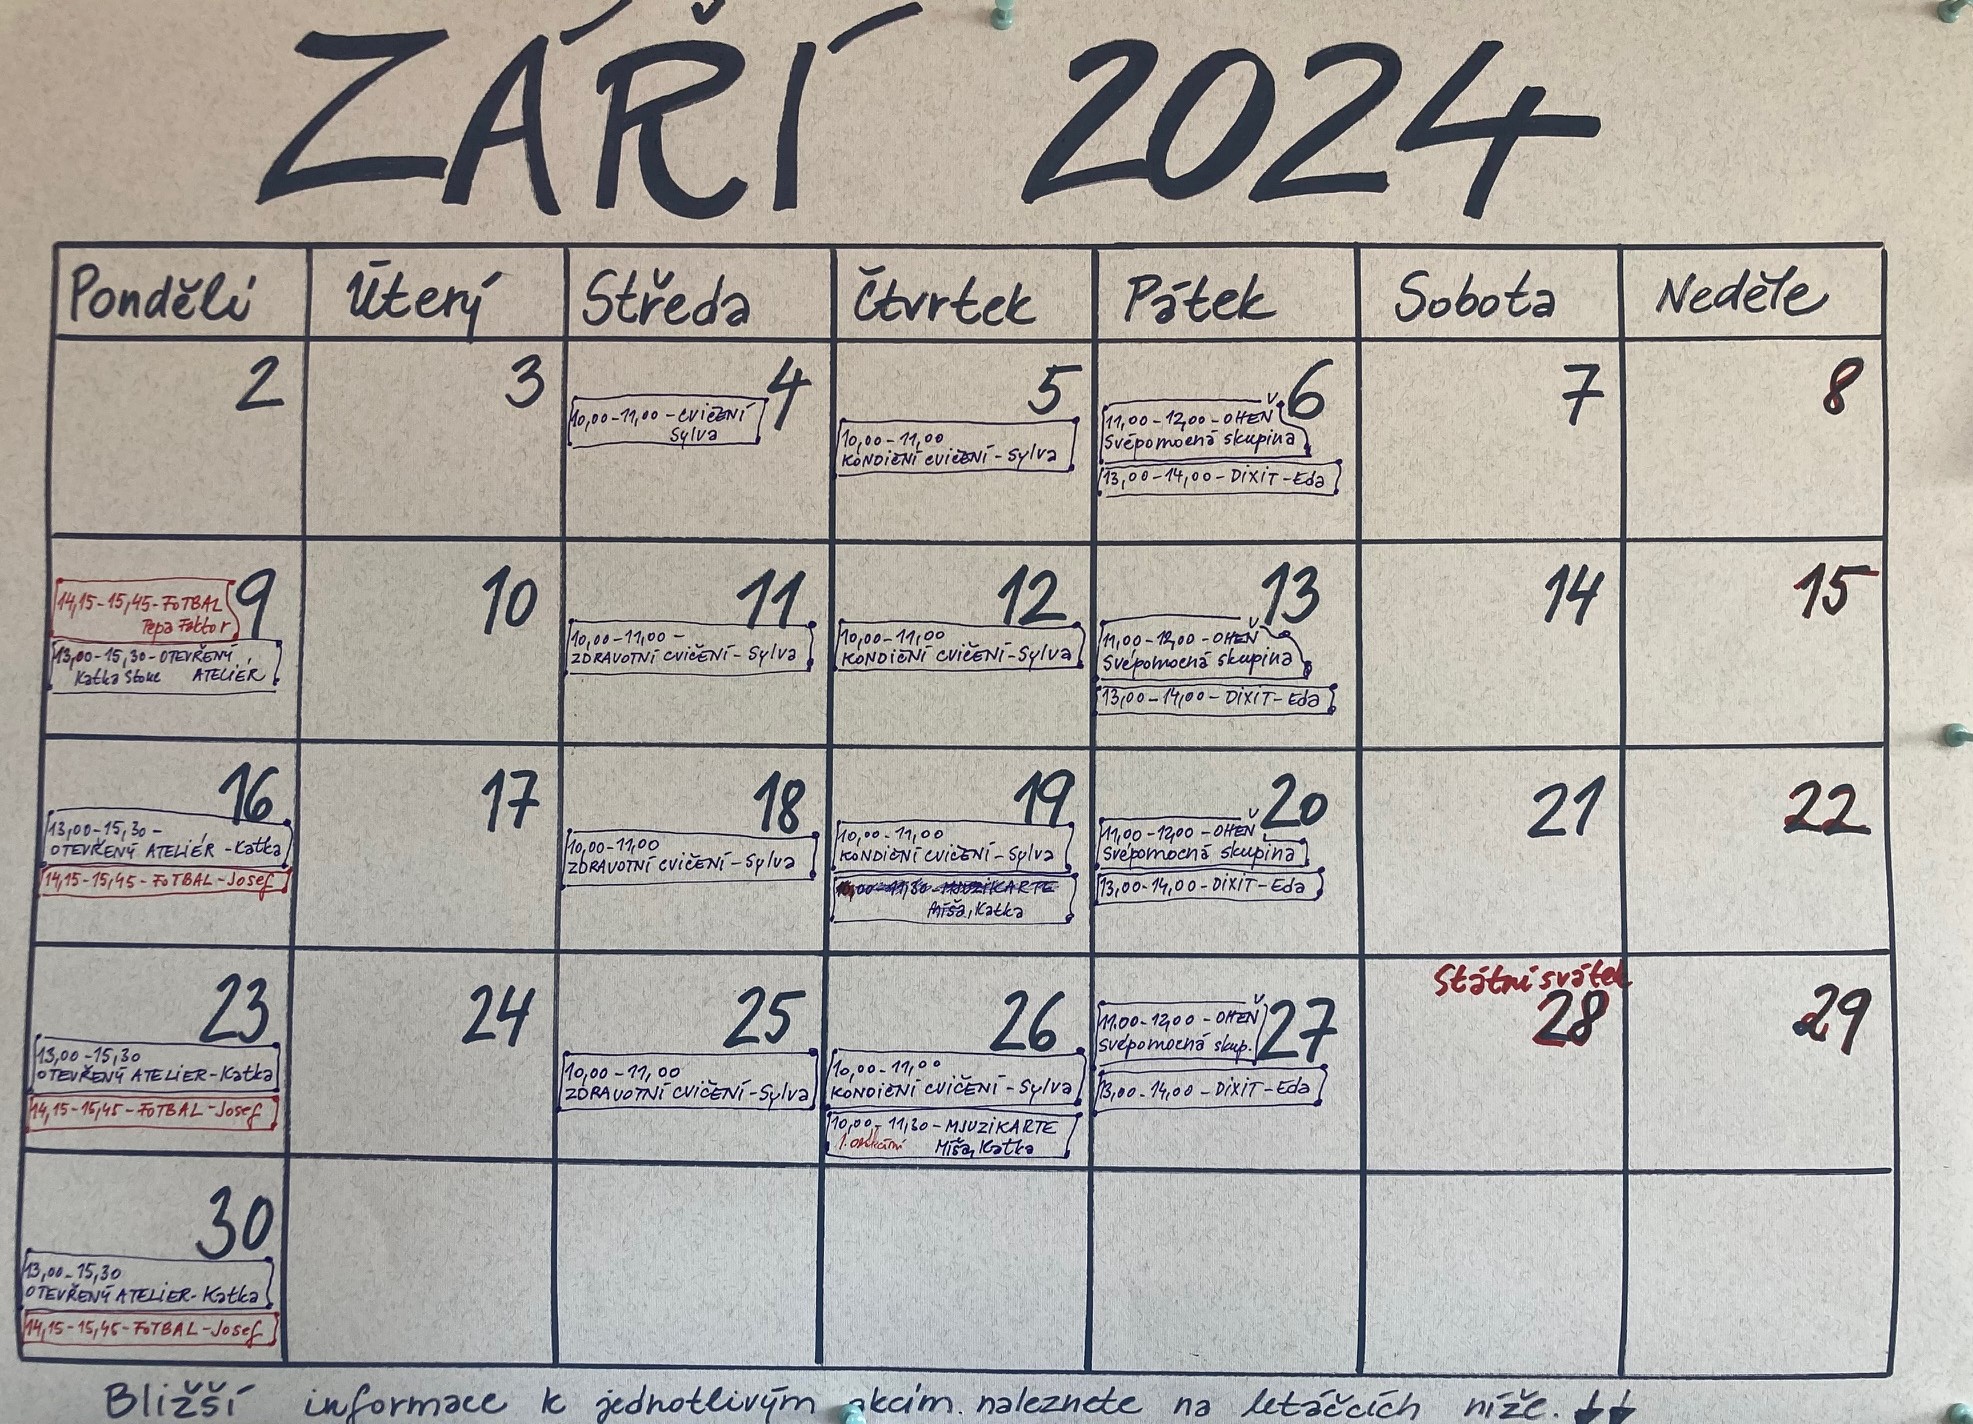 ZÁŘÍ 2024
Pondělí Úterý Středa Čtvrtek Pátek Sobota Neděle
2 3 4 5 6 7 8
10,00-11,00 - CVIČENÍ
Sylva
10,00-11,00
KONDIČNÍ CVIČENÍ - Sylva
11,00-12,00 - OHEŇ
Svépomocná skupina
13,00-14,00 - DIXIT - Eda
9 10 11 12 13 14 15
14,15-15,45 - FOTBAL
Pepa Faktor
13,00-15,30 - OTEVŘENÝ
Katka ATELIÉR
10,00-11,00 -
ZDRAVOTNÍ CVIČENÍ - Sylva
10,00-11,00
KONDIČNÍ CVIČENÍ - Sylva
11,00-12,00 - OHEŇ
Svépomocná skupina
13,00-14,00 - DIXIT - Eda
16 17 18 19 20 21 22
13,00-15,30 -
OTEVŘENÝ ATELIÉR - Katka
14,15-15,45 - FOTBAL - Josef
10,00-11,00
ZDRAVOTNÍ CVIČENÍ - Sylva
10,00-11,00
KONDIČNÍ CVIČENÍ - Sylva
10,00-11,30 - MJUZIKARTE
Míša, Katka
11,00-12,00 - OHEŇ
Svépomocná skupina
13,00-14,00 - DIXIT - Eda
Státní svátek
23 24 25 26 27 28 29
13,00-15,30
OTEVŘENÝ ATELIER - Katka
14,15-15,45 - FOTBAL - Josef
10,00-11,00
ZDRAVOTNÍ CVIČENÍ - Sylva
10,00-11,00
KONDIČNÍ CVIČENÍ - Sylva
10,00-11,30 - MJUZIKARTE
Míša, Katka
11.00-12,00 - OHEŇ
Svépomocná skup.
13,00-14,00 - DIXIT - Eda
30
13,00-15,30
OTEVŘENÝ ATELIER - Katka
14,15-15,45 - FOTBAL - Josef
Bližší informace k jednotlivým akcím naleznete na letáčcích níže. ↓↓